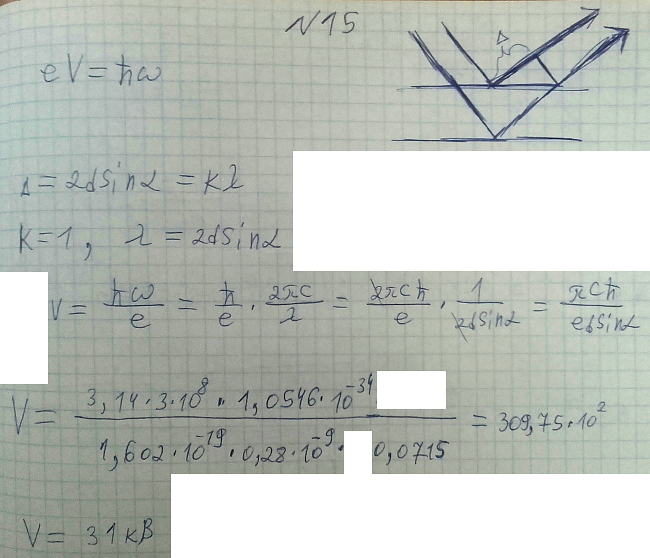 N15
Δ
eV = ħω
Δ = 2dSinα = kλ
k = 1, λ = 2dSinα
V = ħω/e = ħ/e · 2πc/λ = 2πcħ/e · 1/2dSinα = πcħ/edSinα
V = 3,14·3·10⁸ · 1,0546·10⁻³⁴ / 1,602·10⁻¹⁹ · 0,28·10⁻⁹ · 0,0715 = 309,75·10²
V = 31 кВ